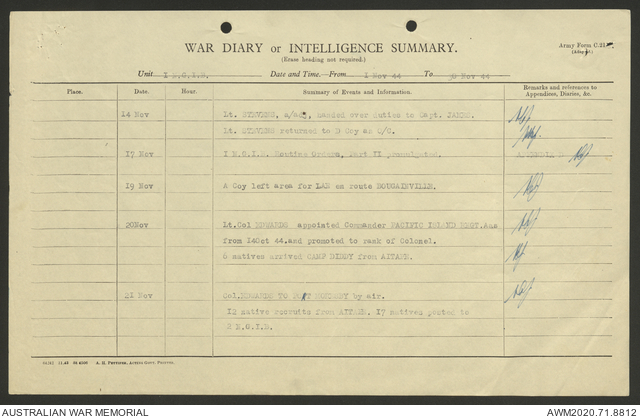 WAR DIARY or INTELLIGENCE SUMMARY.
Army Form C.2118.
(Erase heading not required.)
Unit 1 N.G.I.B. Date and Time.—From 1 Nov 44 To 30 Nov 44
Place. Date. Hour. Summary of Events and Information. Remarks and references to
Appendices, Diaries, &c.
14 Nov Lt. STEVENS, a/adj, handed over duties to Capt.
Lt. STEVENS returned to D Coy as O/C.
17 Nov 1 N.G.I.B. Routine Orders, Part II promulgated.
19 Nov A Coy left area for LAE en route BOUGAINVILLE.
20Nov Lt.Col EDWARDS appointed Commander PACIFIC ISLAND REGT.
from 14Oct 44.and promoted to rank of Colonel.
6 natives arrived CAMP DIDDY from AITAPE.
21 Nov Col.EDWARDS TO PORT MORESBY by air.
12 native recruits from AITAPE. 17 natives posted to
2 N.G.I.B.
AUSTRALIAN WAR MEMORIAL
AWM2020.71.8812